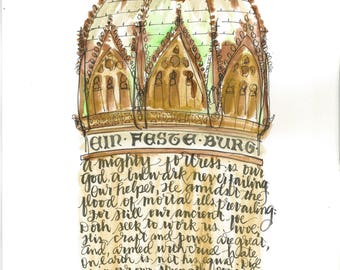 EIN · FESTE · BURG
a mighty fortress is our
God, a bulwark never failing
Our helper, He amidst the
flood of mortal ills prevailing:
For still our ancient foe
doth seek to work us woe
His craft and power are great,
and, armed with cruel hate,
On earth is not his equal.